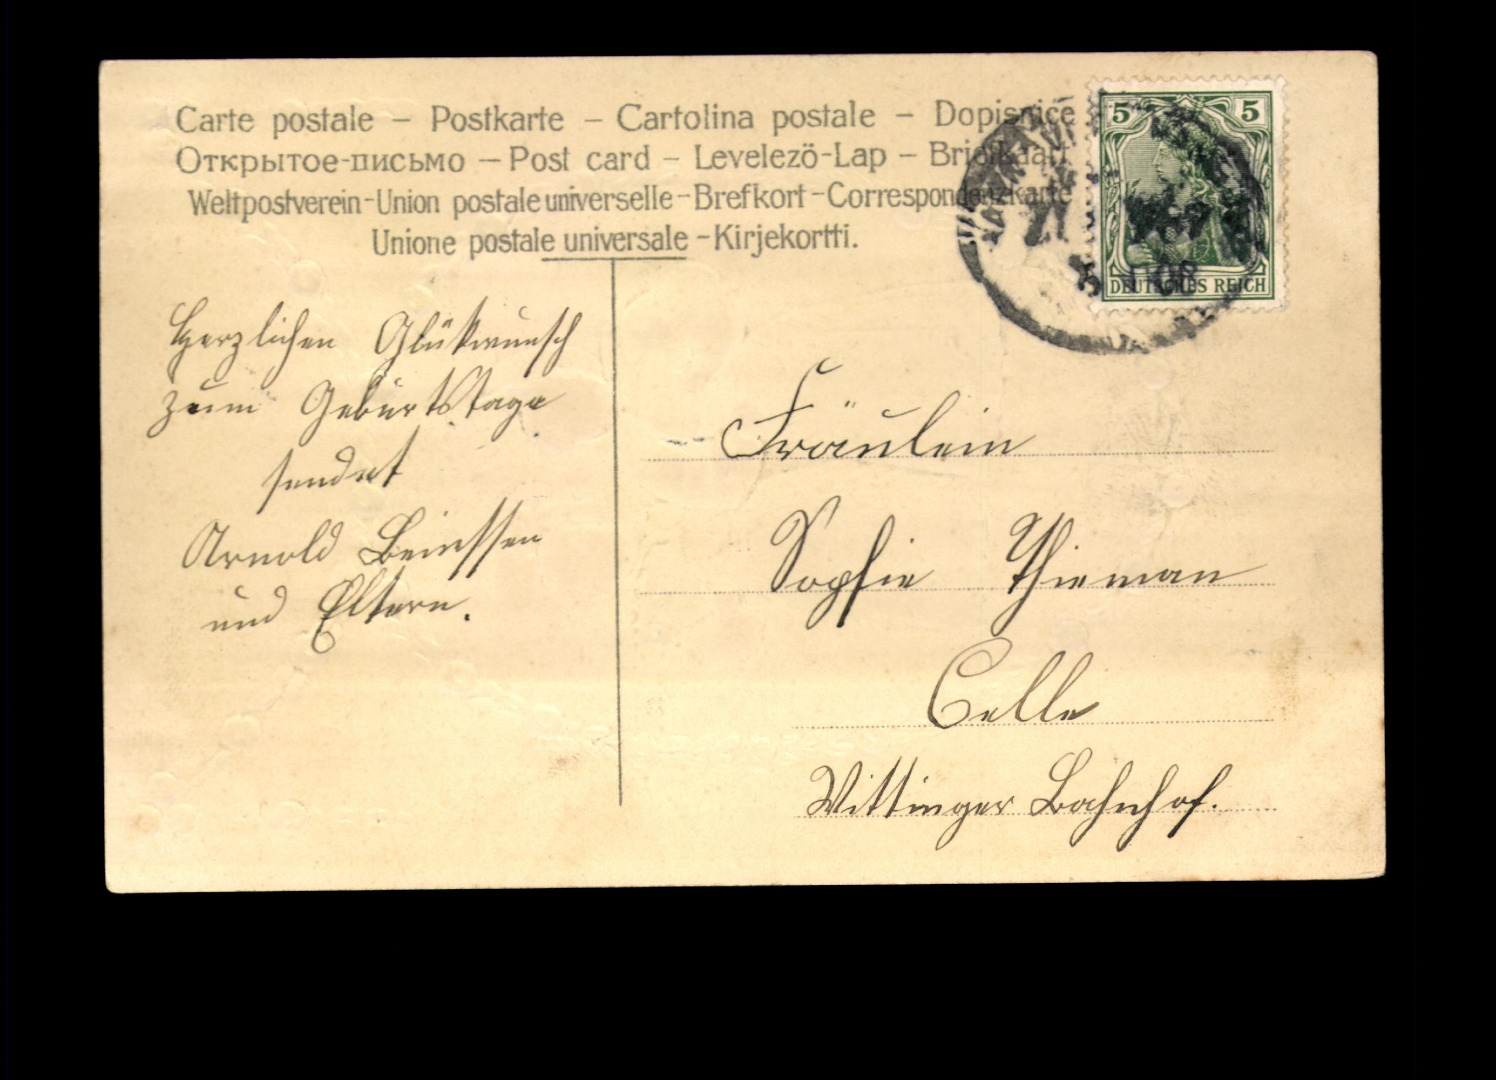 Carte postale – Postkarte – Cartolina postale – Dopisnice
Открытое-письмо – Post card – Levelezö-Lap – Briefkaart
Weltpostverein-Union postale universelle-Brefkort-Correspondenzkarte
Unione postale universale -Kirjekortti.
5 5
DEUTSCHES REICH
Herzlichen Glükwunsch
zum Geburtstage
sendet
Arnold Beinssen
und Eltern.
Fräulein
Sophie Thieman
Celle
Wittinger Bahnhof.